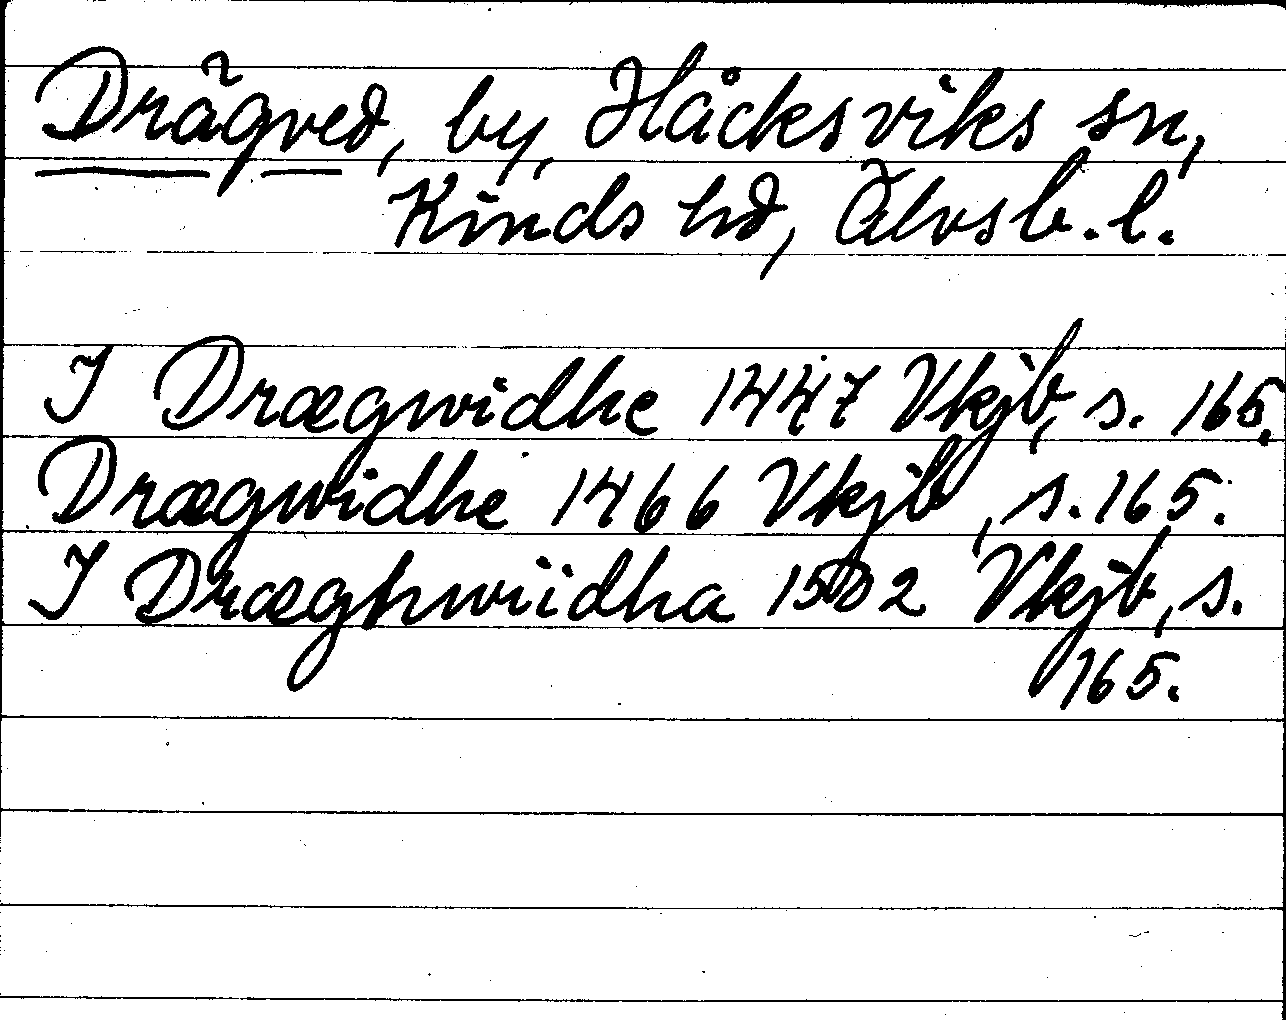 Drägved, by, Håcksviks sn,
Kinds hd, Älvsb. l.
I Drægwidhe 1447 Vkjb, s. 165.
Drægwidhe 1466 Vkjb, s. 165.
I Dræghwiidha 1502 Vkjb, s.
165.